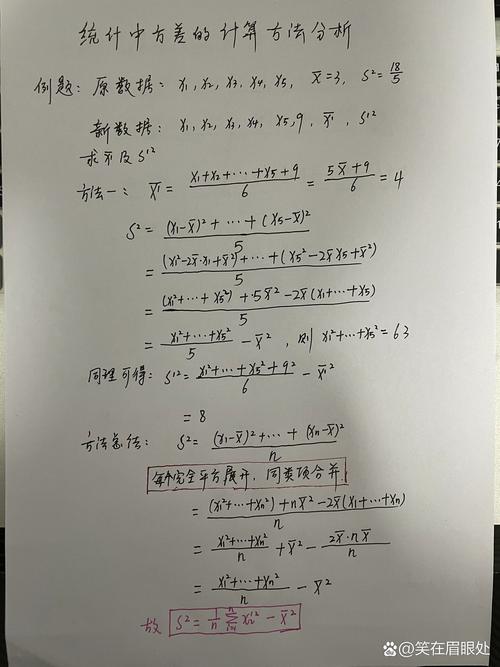 统计中方差的计算方法分析
例题: 原数据: x₁, x₂, x₃, x₄, x₅, x̄=3, S²=18/5
新数据: x₁, x₂, x₃, x₄, x₅, 9, x̄', S'²
求x̄'及S'²
方法一: x̄'= (x₁+x₂+⋯+x₅+9)/6 = (5x̄+9)/6 = 4
S²= ((x₁-x̄)²+⋯+(x₅-x̄)²)/5
= ((x₁²-2x̄·x₁+x̄²)+⋯+(x₅²-2x̄x₅+x̄²))/5
= ((x₁²+⋯+x₅²)+·5x̄²-2x̄(x₁+⋯+x₅))/5
= (x₁²+⋯+x₅²)/5 - x̄², 则 x₁²+⋯+x₅²=63
同理可得: S'²= (x₁²+⋯+x₅²+9²)/6 - x̄'²
= 8
方法总结: S²= ((x₁-x̄)²+⋯+(xₙ-x̄)²)/n
每个完全平方展开, 同类项合并.
= ((x₁²+⋯+xₙ²)+nx̄²-2x̄(x₁+⋯+xₙ))/n
= (x₁²+⋯+xₙ²)/n + x̄² - (2x̄·nx̄)/n
= (x₁²+⋯+xₙ²)/n - x̄²
故 S²= 1/n ∑ - x̄²
@笑在眉眼处